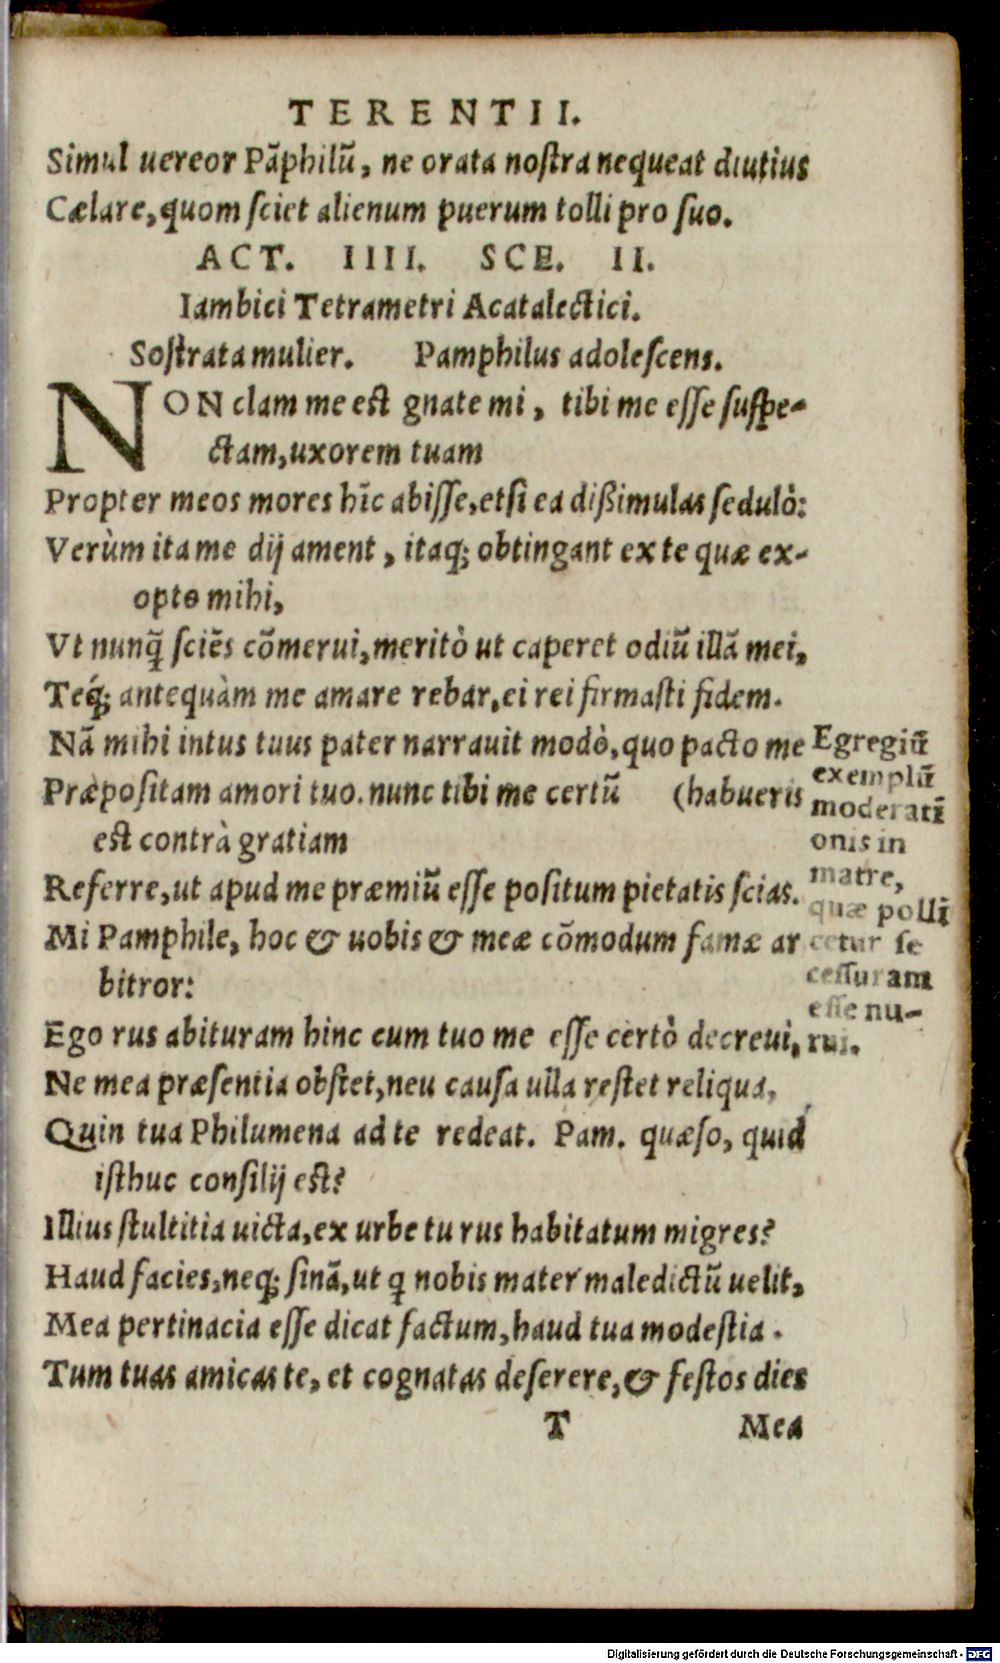 TERENTII.
Simul uereor Pãphilũ, ne orata noſtra nequeat diutius
Cælare, quom ſciet alienum puerum tolli pro ſuo.
ACT. IIII. SCE. II.
Iambici Tetrametri Acatalectici.
Soſtrata mulier. Pamphilus adoleſcens.
NON clam me eſt gnate mi, tibi me eſſe ſuſpe-
ctam, uxorem tuam
Propter meos mores hîc abiſſe, etſi ea dißimulas ſedulò:
Verùm ita me dij ament, itaq; obtingant ex te quæ ex-
opto mihi,
Vt nunq̃ ſciẽs cõmerui, meritò ut caperet odiũ illã mei,
Teq́; antequàm me amare rebar, ei rei firmaſti fidem.
Nã mihi intus tuus pater narrauit modò, quo pacto me
Præpoſitam amori tuo. nunc tibi me certũ (habueris
eſt contrà gratiam
Referre, ut apud me præmiũ eſſe poſitum pietatis ſcias.
Mi Pamphile, hoc & uobis & meæ cõmodum famæ ar
bitror:
Ego rus abituram hinc cum tuo me eſſe certò decreui,
Ne mea præſentia obſtet, neu cauſa ulla reſtet reliqua,
Quin tua Philumena ad te redeat. Pam. quæſo, quid
iſthuc conſilij eſt?
Illius ſtultitia uicta, ex urbe tu rus habitatum migres?
Haud facies, neq; ſinã, ut q nobis mater maledictũ uelit,
Mea pertinacia eſſe dicat factum, haud tua modeſtia.
Tum tuas amicas te, et cognatas deſerere, & feſtos dies
T Mea
Egregiũ
exemplũ
moderatĩ
onis in
matre,
quæ pollĩ
cetur ſe
ceſſuram
eſſe nu-
rui.
Digitalisierung gefördert durch die Deutsche Forschungsgemeinschaft - DFG